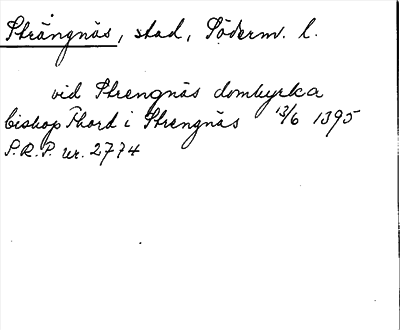 Strängnäs, stad, Söderm. l.
vid Strengnäs domkyrka
biskop Thord i Strengnäs 13/6 1395
S.R.P. nr. 2774